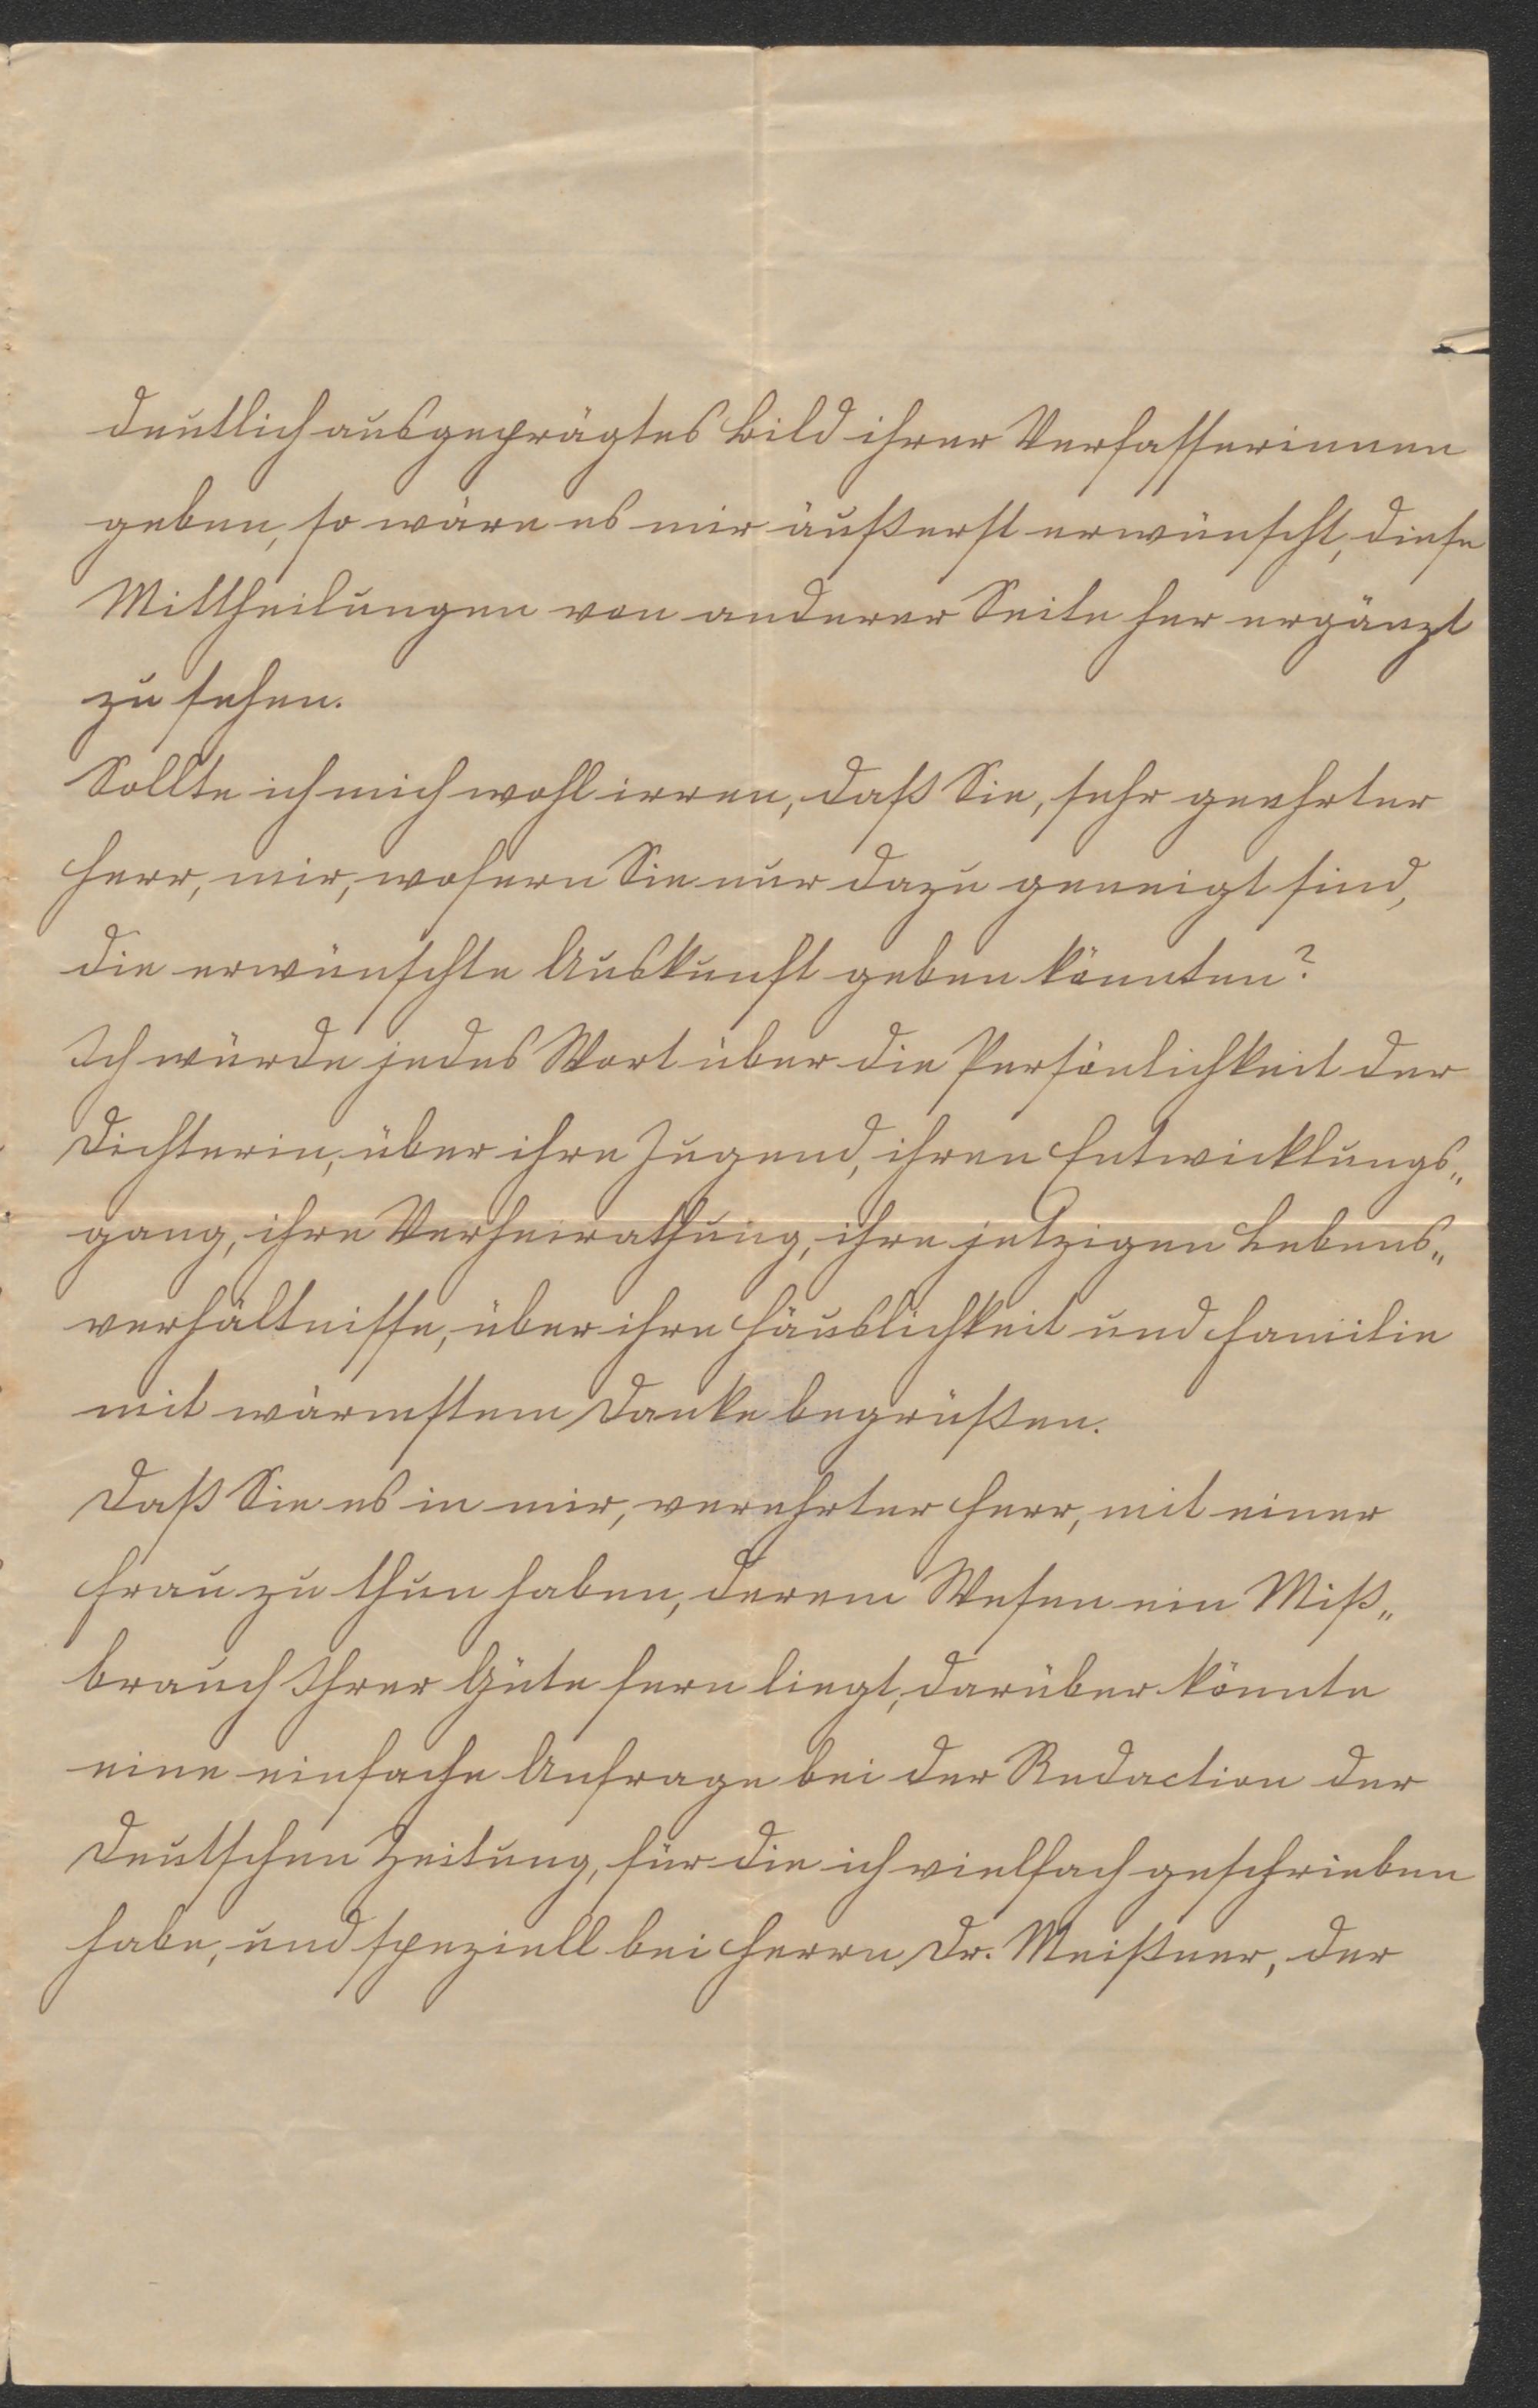 deutlich ausgeprägtes Bild ihrer Verfasserinnen
geben, so wäre es mir äußerst erwünscht, diese
Mittheilungen von anderer Seite her ergänzt
zu sehen.
Sollte ich mich wohl irren, daß Sie, sehr geehrter
Herr, mir, wofern Sie nur dazu geneigt sind,
die erwünschte Auskunft geben könnten?
Ich würde jedes Wort über die Persönlichkeit der
Dichterin, über ihre Jugend, ihren Entwicklungs„
gang, ihre Verheirathung, ihre jetzigen Lebens„
verhältnisse, über ihre Häuslichkeit und Familie
mit wärmstem Danke begrüßen.
Daß Sie es in mir, verehrter Herr, mit einer
Frau zu thun haben, derem Wesen ein Miß„
brauch Ihrer Güte fern liegt, darüber könnte
eine einfache Anfrage bei der Redaction der
Deutschen Zeitung, für die ich vielfach geschrieben
habe, und speziell bei Herrn Dr. Meißner, der